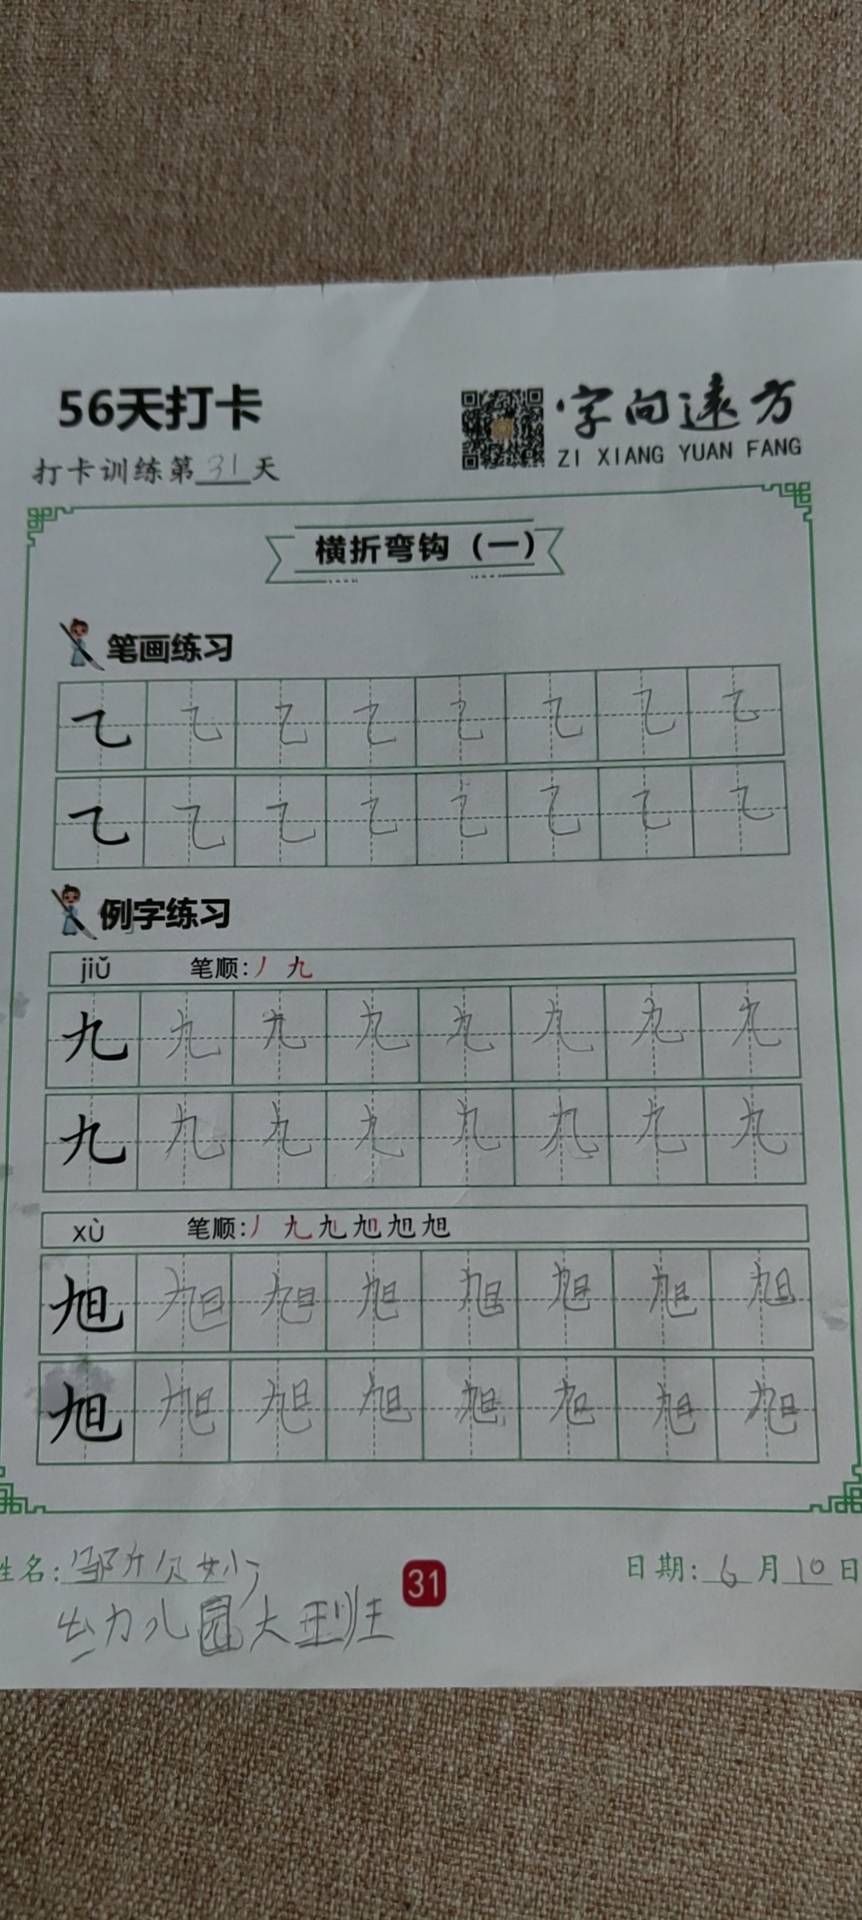 56天打卡
字向远方
ZI XIANG YUAN FANG
打卡训练第31天
横折弯钩（一）
笔画练习
乙 乙 乙 乙 乙 乙 乙 乙
乙 乙 乙 乙 乙 乙 乙 乙
例字练习
jiǔ 笔顺：丿 九
九 九 九 九 九 九 九 九
九 九 九 九 九 九 九 九
xù 笔顺：丿 九 九 旭 旭 旭
旭 旭 旭 旭 旭 旭 旭 旭
旭 旭 旭 旭 旭 旭 旭 旭
姓名：邹 妙
31
日期：6月10日
幼儿园大 班